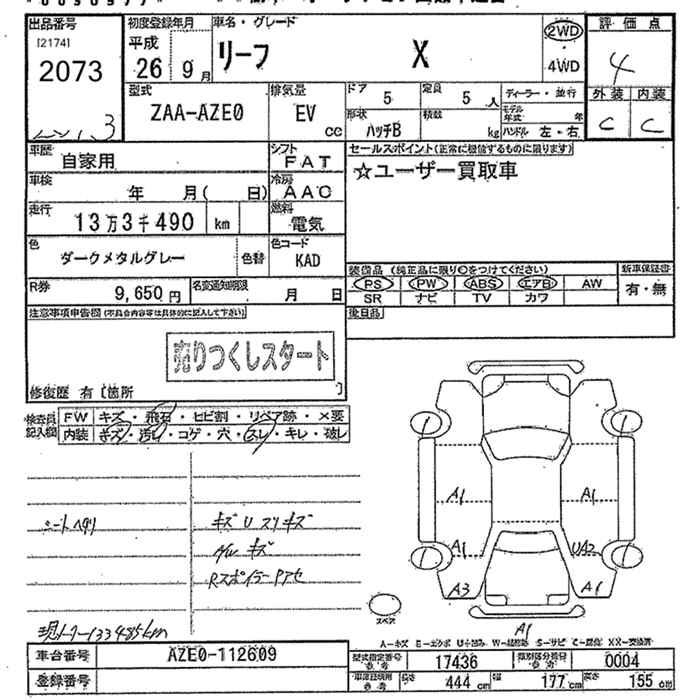 出品番号
[2174]
2073
初度登録年月
平成
26 9月
車名・グレード
リーフ X
2WD
4WD
評価点
4
外装 内装
C C
型式
ZAA-AZE0
排気量
EV cc
ドア
5
定員
5人
ディーラー・並行
モデル年式 年
形状
ハッチB
積載
kg
ハンドル 左・右
車歴
自家用
シフト
FAT
セールスポイント(正常に機能するものに限ります)
☆ユーザー買取車
車検
年 月( 日)
冷房
AAC
走行
13万3千490 km
燃料
電気
色
ダークメタルグレー
色替
色コード
KAD
装備品 (純正品に限り○をつけてください)
新車保証書
PS PW ABS エアB AW
有・無
SR ナビ TV カワ
R券
9,650円
名変通知期限
月 日
後日品
注意事項申告欄(不具合内容等は具体的に記入して下さい)
売りつくしスタート
修復歴 有 [箇所 ]
検査員記入欄
FW キズ・飛石・ヒビ割・リペア跡・×要
内装 キズ・汚れ・コゲ・穴・スレ・キレ・破レ
シートヘタリ
キズ U スリキズ
キズ
Rスポイラー Pアセ
現メーター133485km
A1 A1
A1 UA2
A3 A1
A1
スペア
A-キズ E-エクボ U-凹み W-補修跡 S-サビ C-腐食 XX-交換済
車台番号
AZE0-112609
登録番号
型式指定番号
参考
17436
類別区分番号
参考
0004
車庫証明用
参考
長さ 444 cm
幅 177 cm
高さ 155 cm